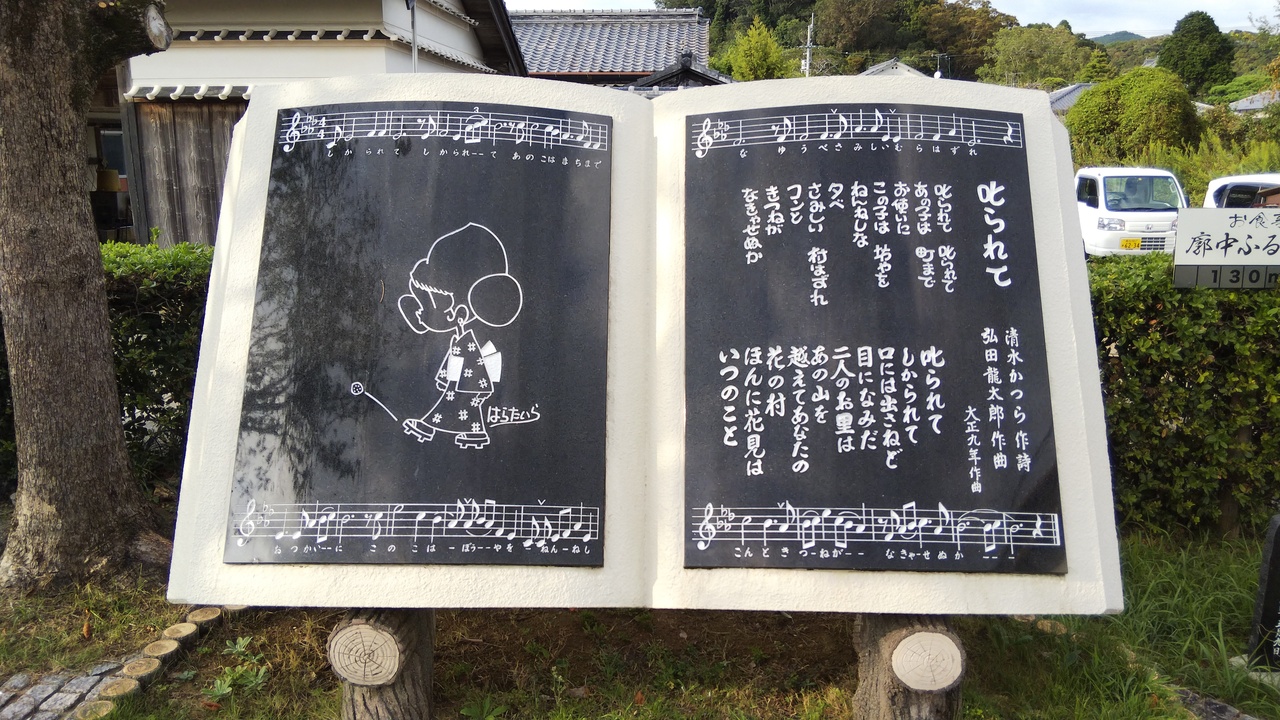 しかられて しかられーーて あのこは まちまで
はらたいら
おつかいーーに このこは ーぼうーーやを ねんーねし
な ゆうべさみしいむらはずれ
叱られて
清水かつら 作詩
弘田龍太郎 作曲
大正九年作曲
叱られて 叱られて
あの子は 町まで
お使いに
この子は 坊やを
ねんねしな
夕べ
さみしい 村はずれ
コンと
きつねが
なきゃせぬか
叱られて
しかられて
口には出さねど
目になみだ
二人のお里は
あの山を
越えてあなたの
花の村
ほんに花見は
いつのこと
こんときつーねがーー なきゃーせぬか ーーー
お食
廓中ふる
130m